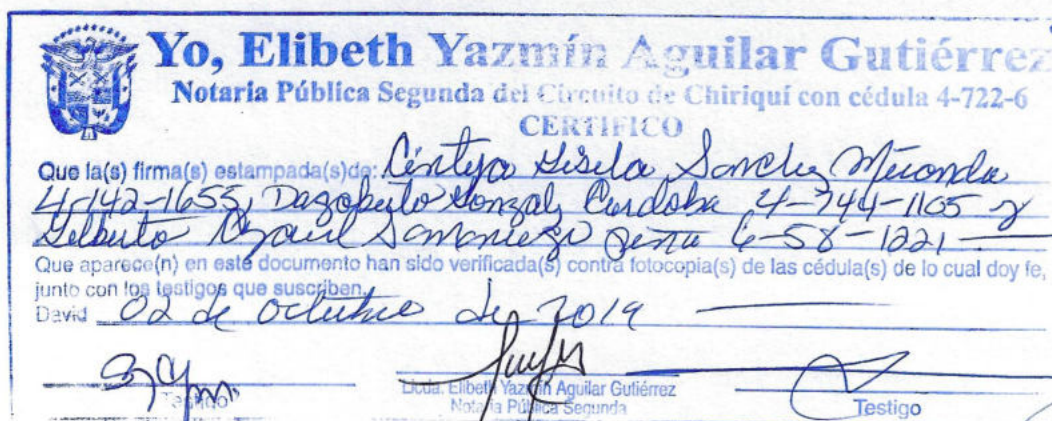 Yo, Elibeth Yazmín Aguilar Gutiérrez
Notaria Pública Segunda del Circuito de Chiriquí con cédula 4-722-6
CERTIFICO
Que la(s) firma(s) estampada(s)de: Cintya Gisela Sanchez Miranda
4-142-1655, Dagoberto Gonzalz Cordoba 4-744-1165 y
Gilberto Samaniego 6-58-1221
Que aparece(n) en este documento han sido verificada(s) contra fotocopia(s) de las cédula(s) de lo cual doy fe,
junto con los testigos que suscriben.
David 02 de octubre de 2019
Testigo
Licda. Elibeth Yazmín Aguilar Gutiérrez
Notaria Pública Segunda
Testigo